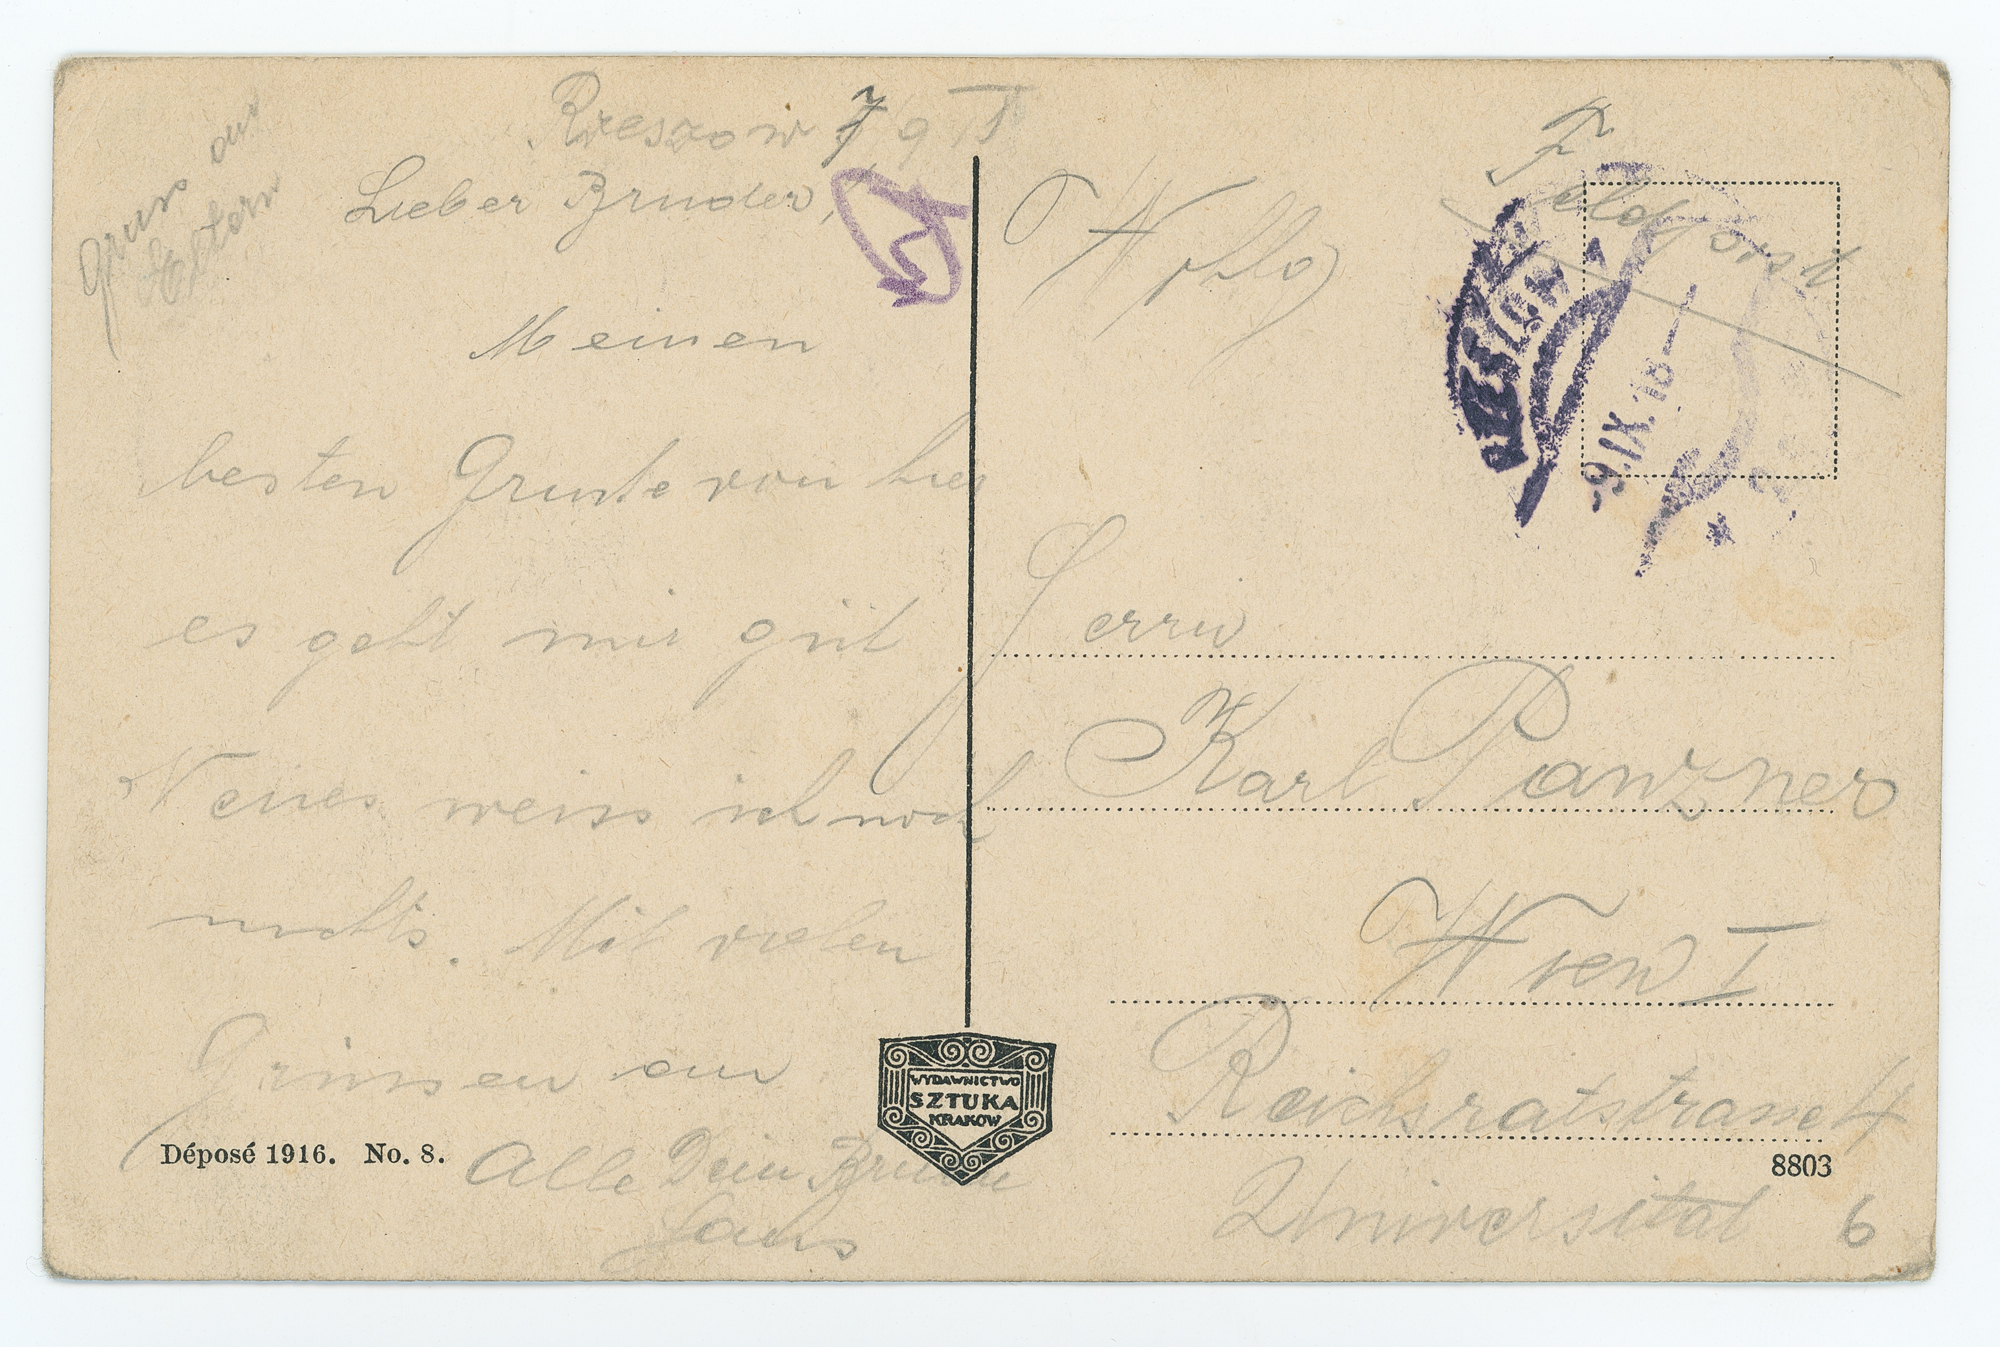 Gruss an
Eltern
Rzeszow 7 9
Lieber Bruder,
Meinen
besten Grüße von hier
es geht mir gut
Neues weiss ich noch
nichts. Mit vielen
Grüssen an
Alle Dein Bruder
Hans
Feldpost
RZESZÓW 1
-9.IX.18-
Herrn
Karl Panzner
Wien I
Reichsratstrasse 4
Universität 6
WYDAWNICTWO
SZTUKA
KRAKÓW
Déposé 1916. No. 8.
8803